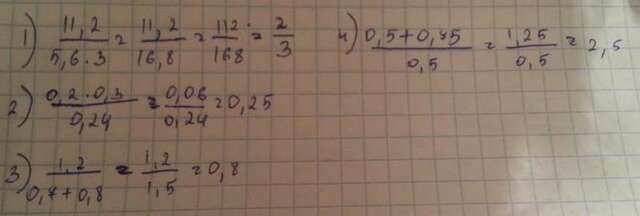 1) 11,2 / 5,6·3 = 11,2 / 16,8 = 112 / 168 = 2 / 3
2) 0,2·0,3 / 0,24 = 0,06 / 0,24 = 0,25
3) 1,2 / 0,7+0,8 = 1,2 / 1,5 = 0,8
4) 0,5+0,75 / 0,5 = 1,25 / 0,5 = 2,5